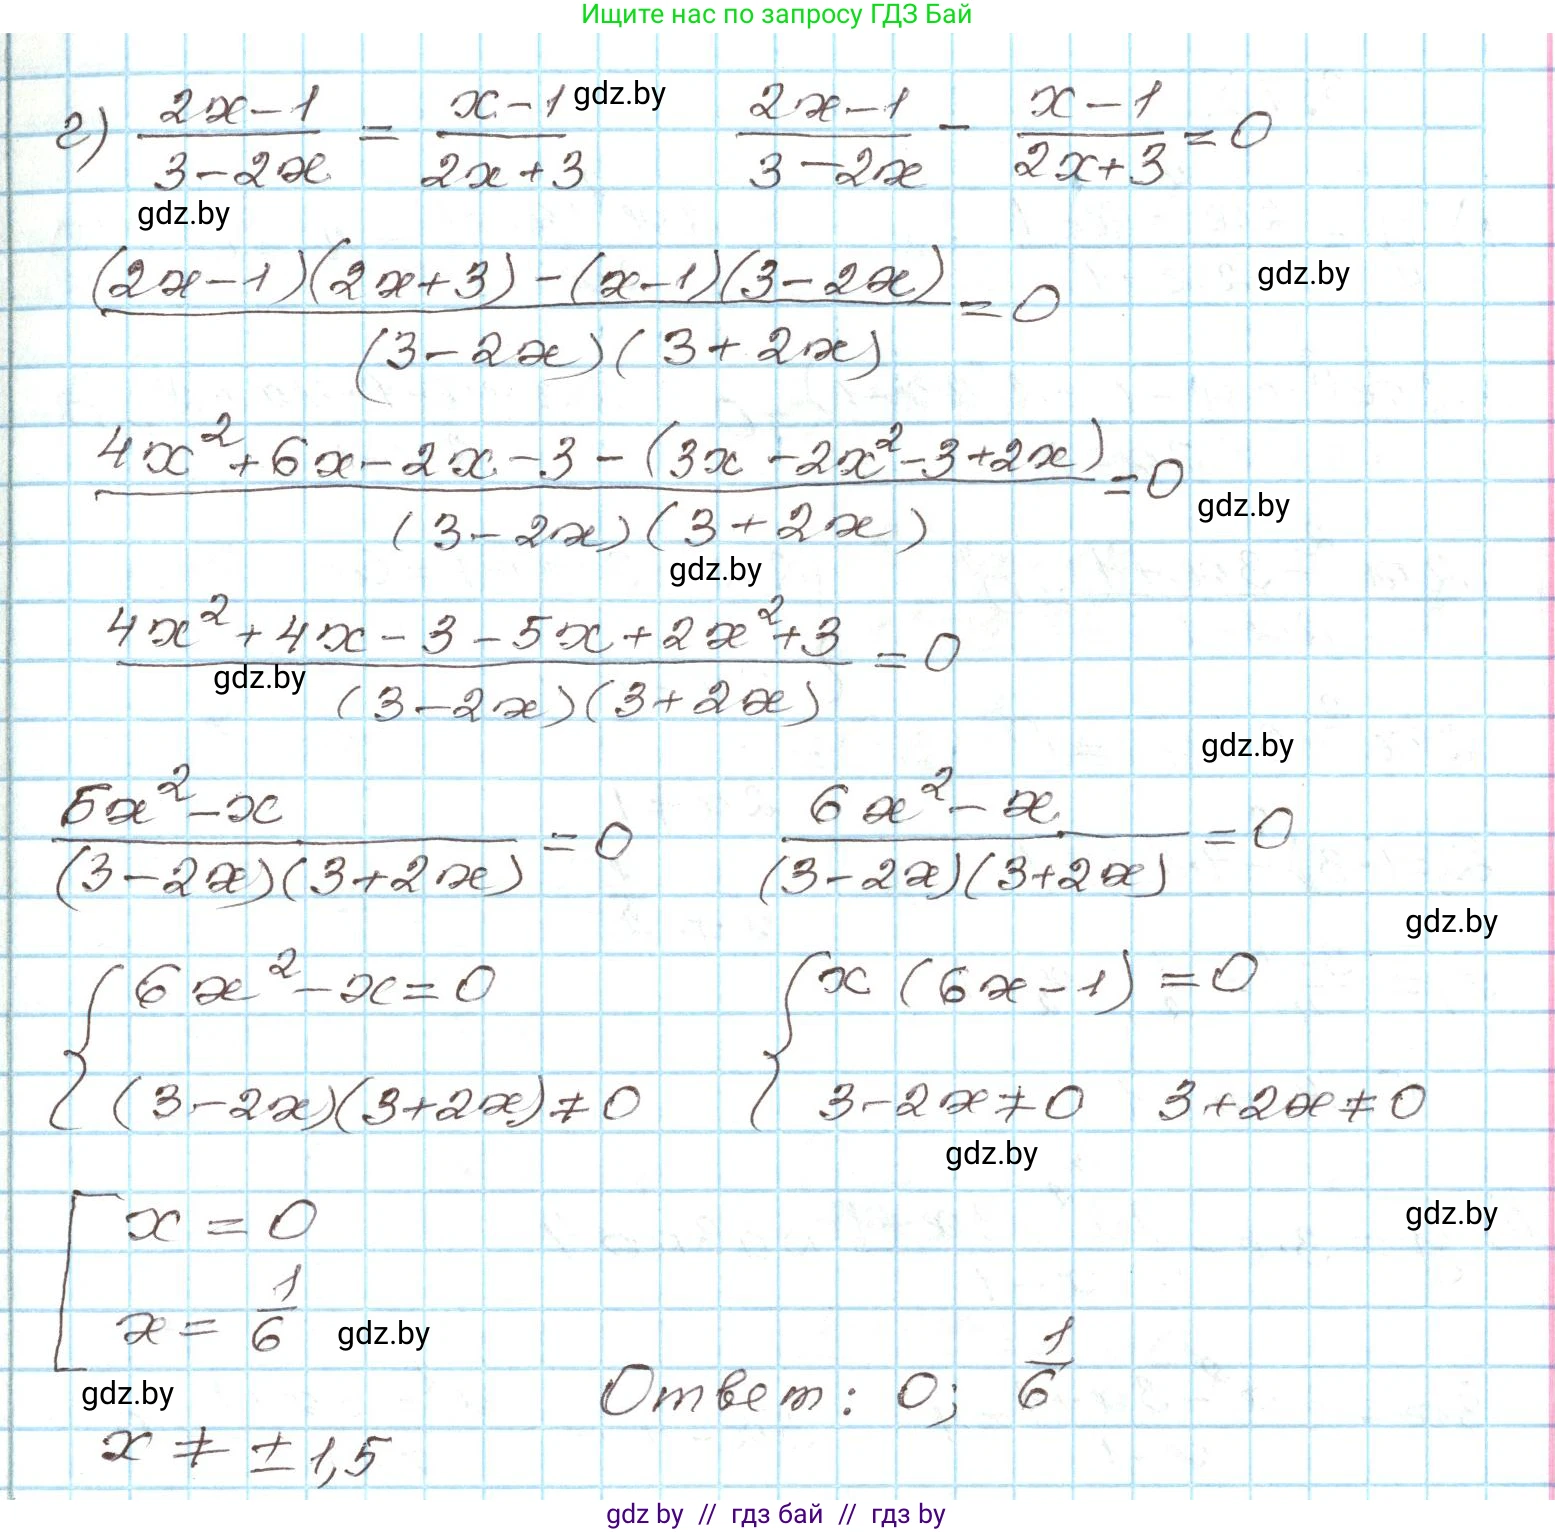 Ищите нас по запросу ГДЗ Бай
г) (2x-1)/(3-2x) = (x-1)/(2x+3) gdz.by (2x-1)/(3-2x) - (x-1)/(2x+3) = 0
gdz.by
((2x-1)(2x+3)-(x-1)(3-2x))/((3-2x)(3+2x)) = 0 gdz.by
(4x²+6x-2x-3-(3x-2x²-3+2x))/((3-2x)(3+2x)) = 0 gdz.by
gdz.by
(4x²+4x-3-5x+2x²+3)/((3-2x)(3+2x)) = 0
gdz.by
gdz.by
(6x²-x)/((3-2x)(3+2x)) = 0 (6x²-x)/((3-2x)(3+2x)) = 0
gdz.by
{ 6x²-x=0 { x(6x-1)=0
(3-2x)(3+2x)≠0 3-2x≠0 3+2x≠0
gdz.by
[ x = 0 gdz.by
x = 1/6 gdz.by
gdz.by Ответ: 0; 1/6
x ≠ ±1,5
gdz by // гдз бай // гдз by